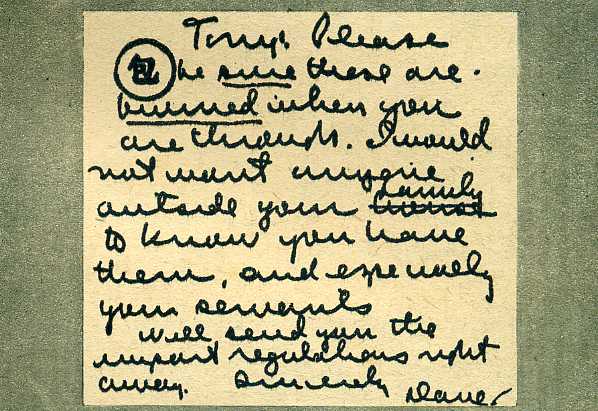 Tony: Please
包 be sure these are
burned when you
are through. I would
not want anyone
family
outside your
to know you have
them, and especially
your servants
Will send you the
import regulations right
away. Sincerely Dave